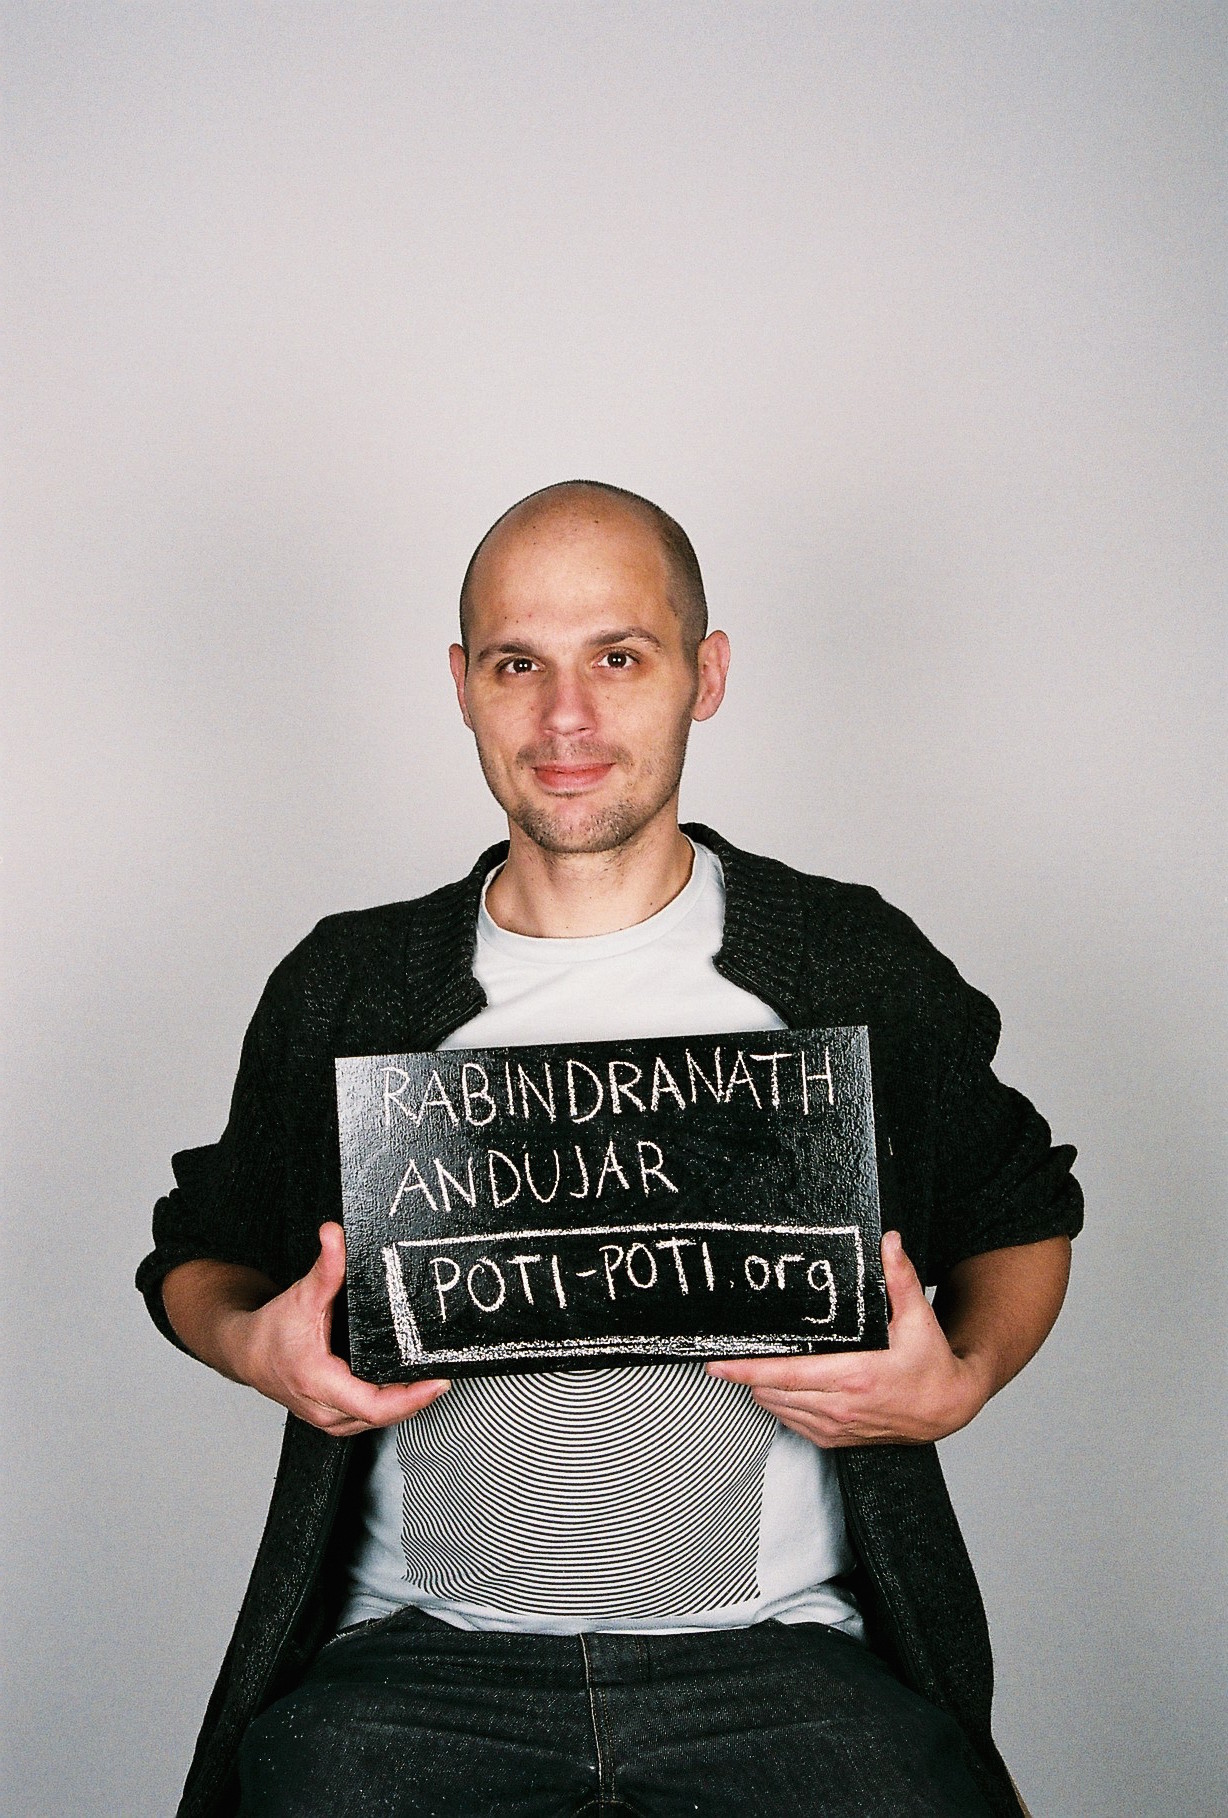 RABINDRANATH
ANDUJAR
POTI-POTI.org